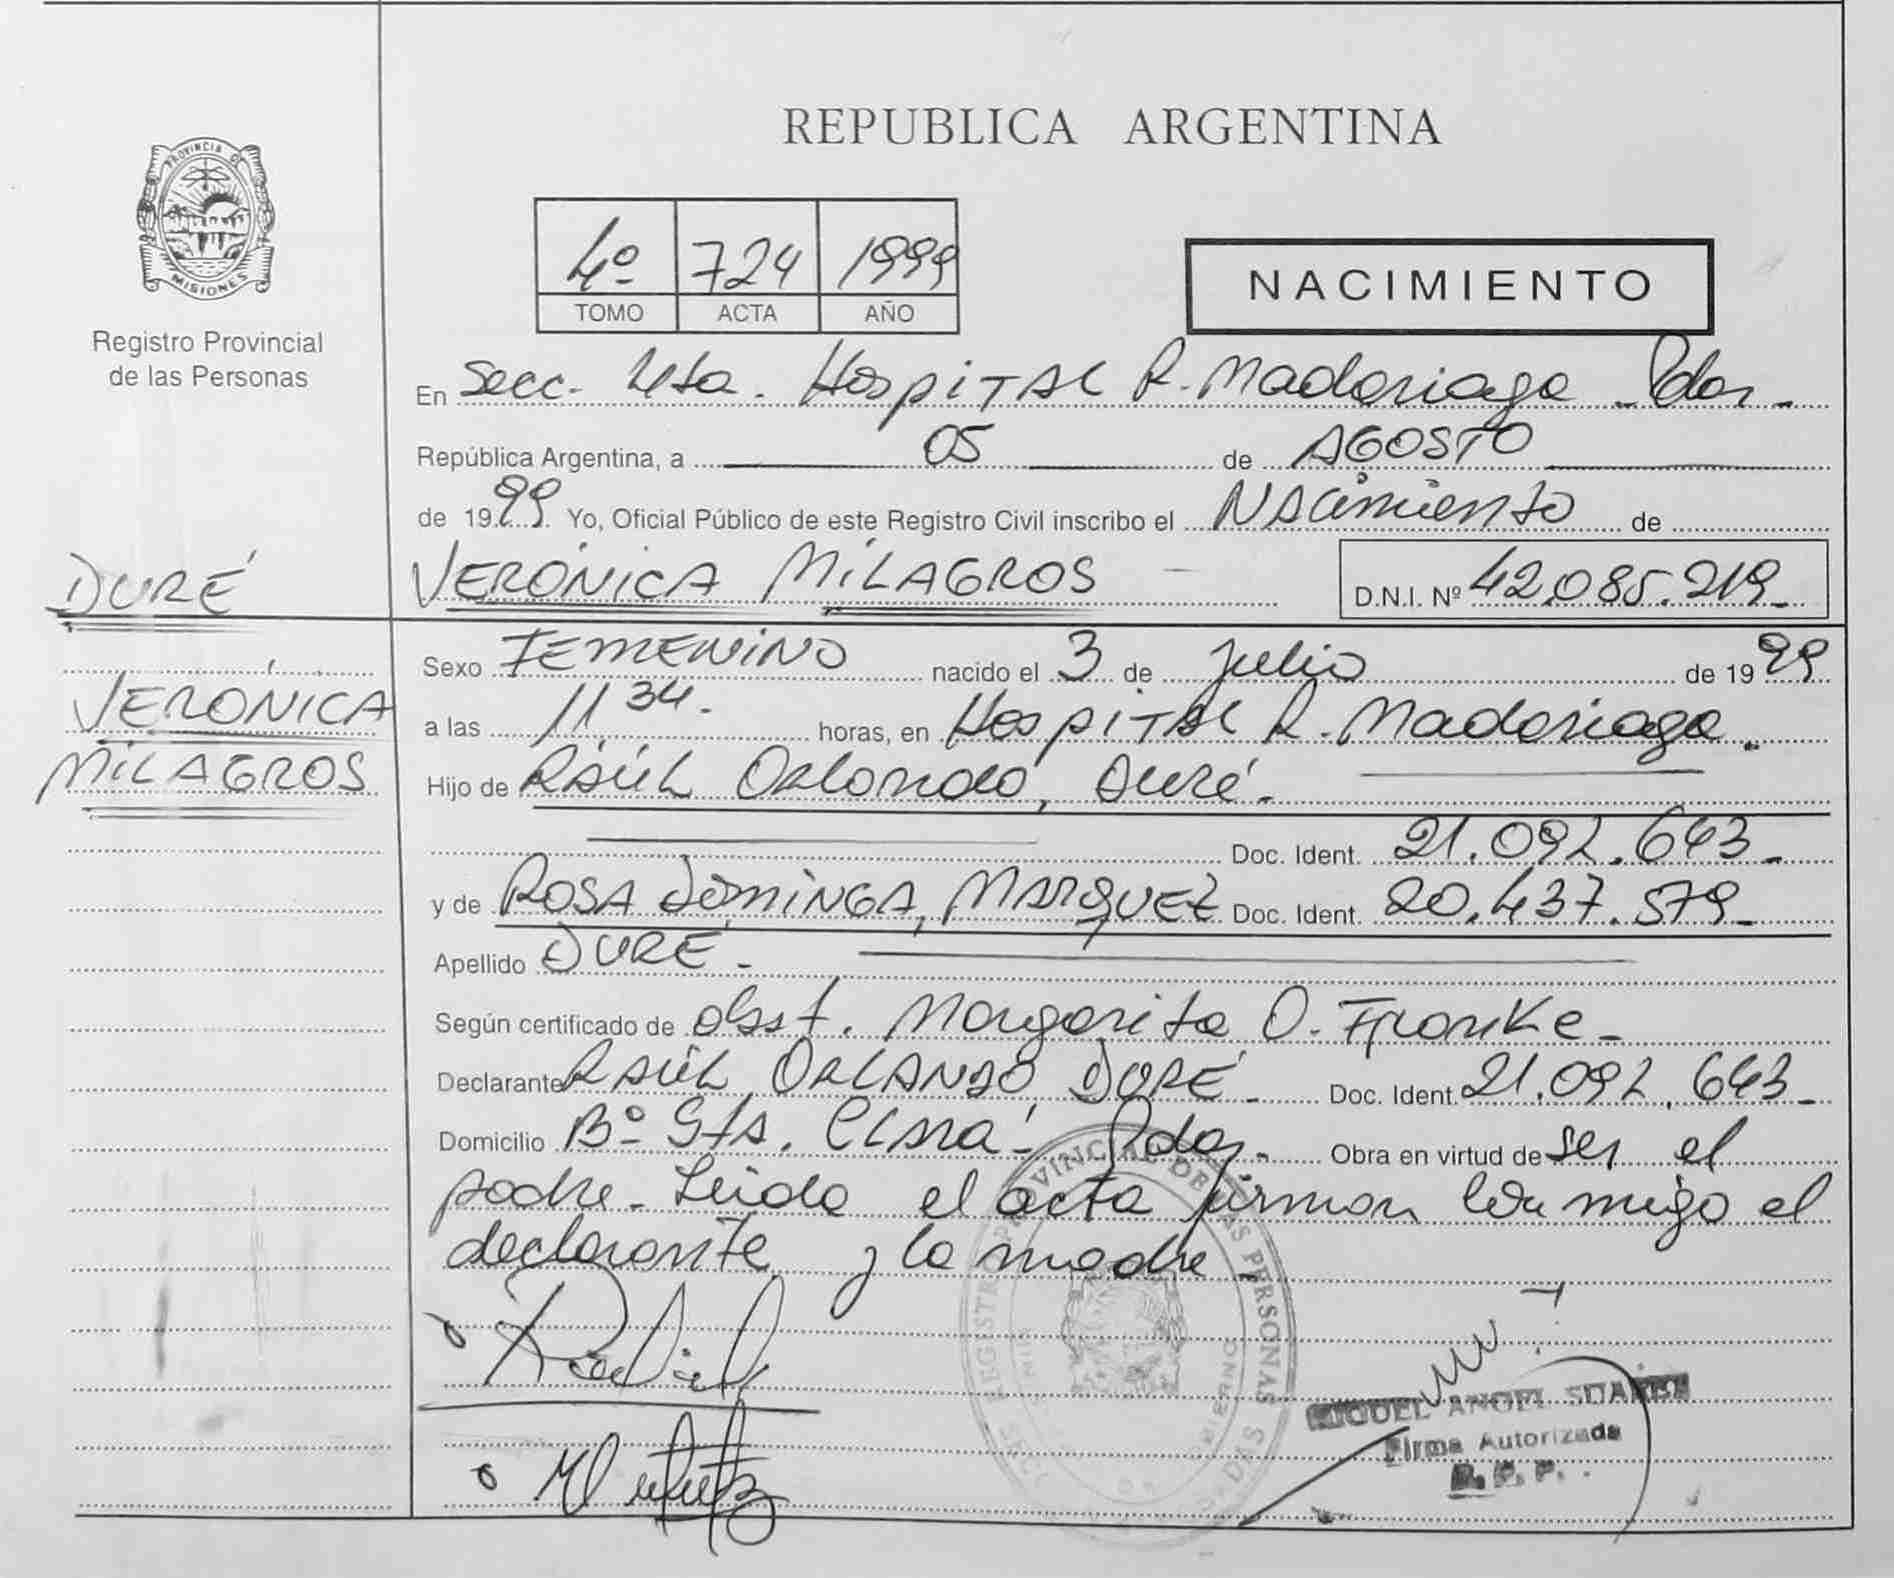 REPUBLICA ARGENTINA
PROVINCIA DE
MISIONES
Registro Provincial
de las Personas
4º 724 1999
TOMO ACTA AÑO
NACIMIENTO
En Secc. 4ta. Hospital R. Madariaga - Pdas -
República Argentina, a 05 de AGOSTO
de 1999. Yo, Oficial Público de este Registro Civil inscribo el Nacimiento de
DURÉ
VERÓNICA MILAGROS D.N.I. Nº 42.085.219.-
VERÓNICA
MILAGROS
Sexo FEMENINO nacido el 3 de Julio de 1999
a las 11 34. horas, en Hospital R. Madariaga.
Hijo de RAÚL Orlando, Duré.-
Doc. Ident. 21.092.643.-
y de ROSA DOMINGA, MARQUEZ Doc. Ident. 20.437.579.-
Apellido DURÉ.-
Según certificado de obst. Margarita O. Franke.-
Declarante RAÚL ORLANDO DURÉ.- Doc. Ident. 21.092.643.-
Domicilio Bº Sta. Clara - Pdas.- Obra en virtud de ser el
padre.- Leida el acta firman conmigo el
declarante y la madre
REGISTRO PROVINCIAL DE LAS PERSONAS
MIGUEL ANGEL SUAREZ
Firma Autorizada
R. P. P.